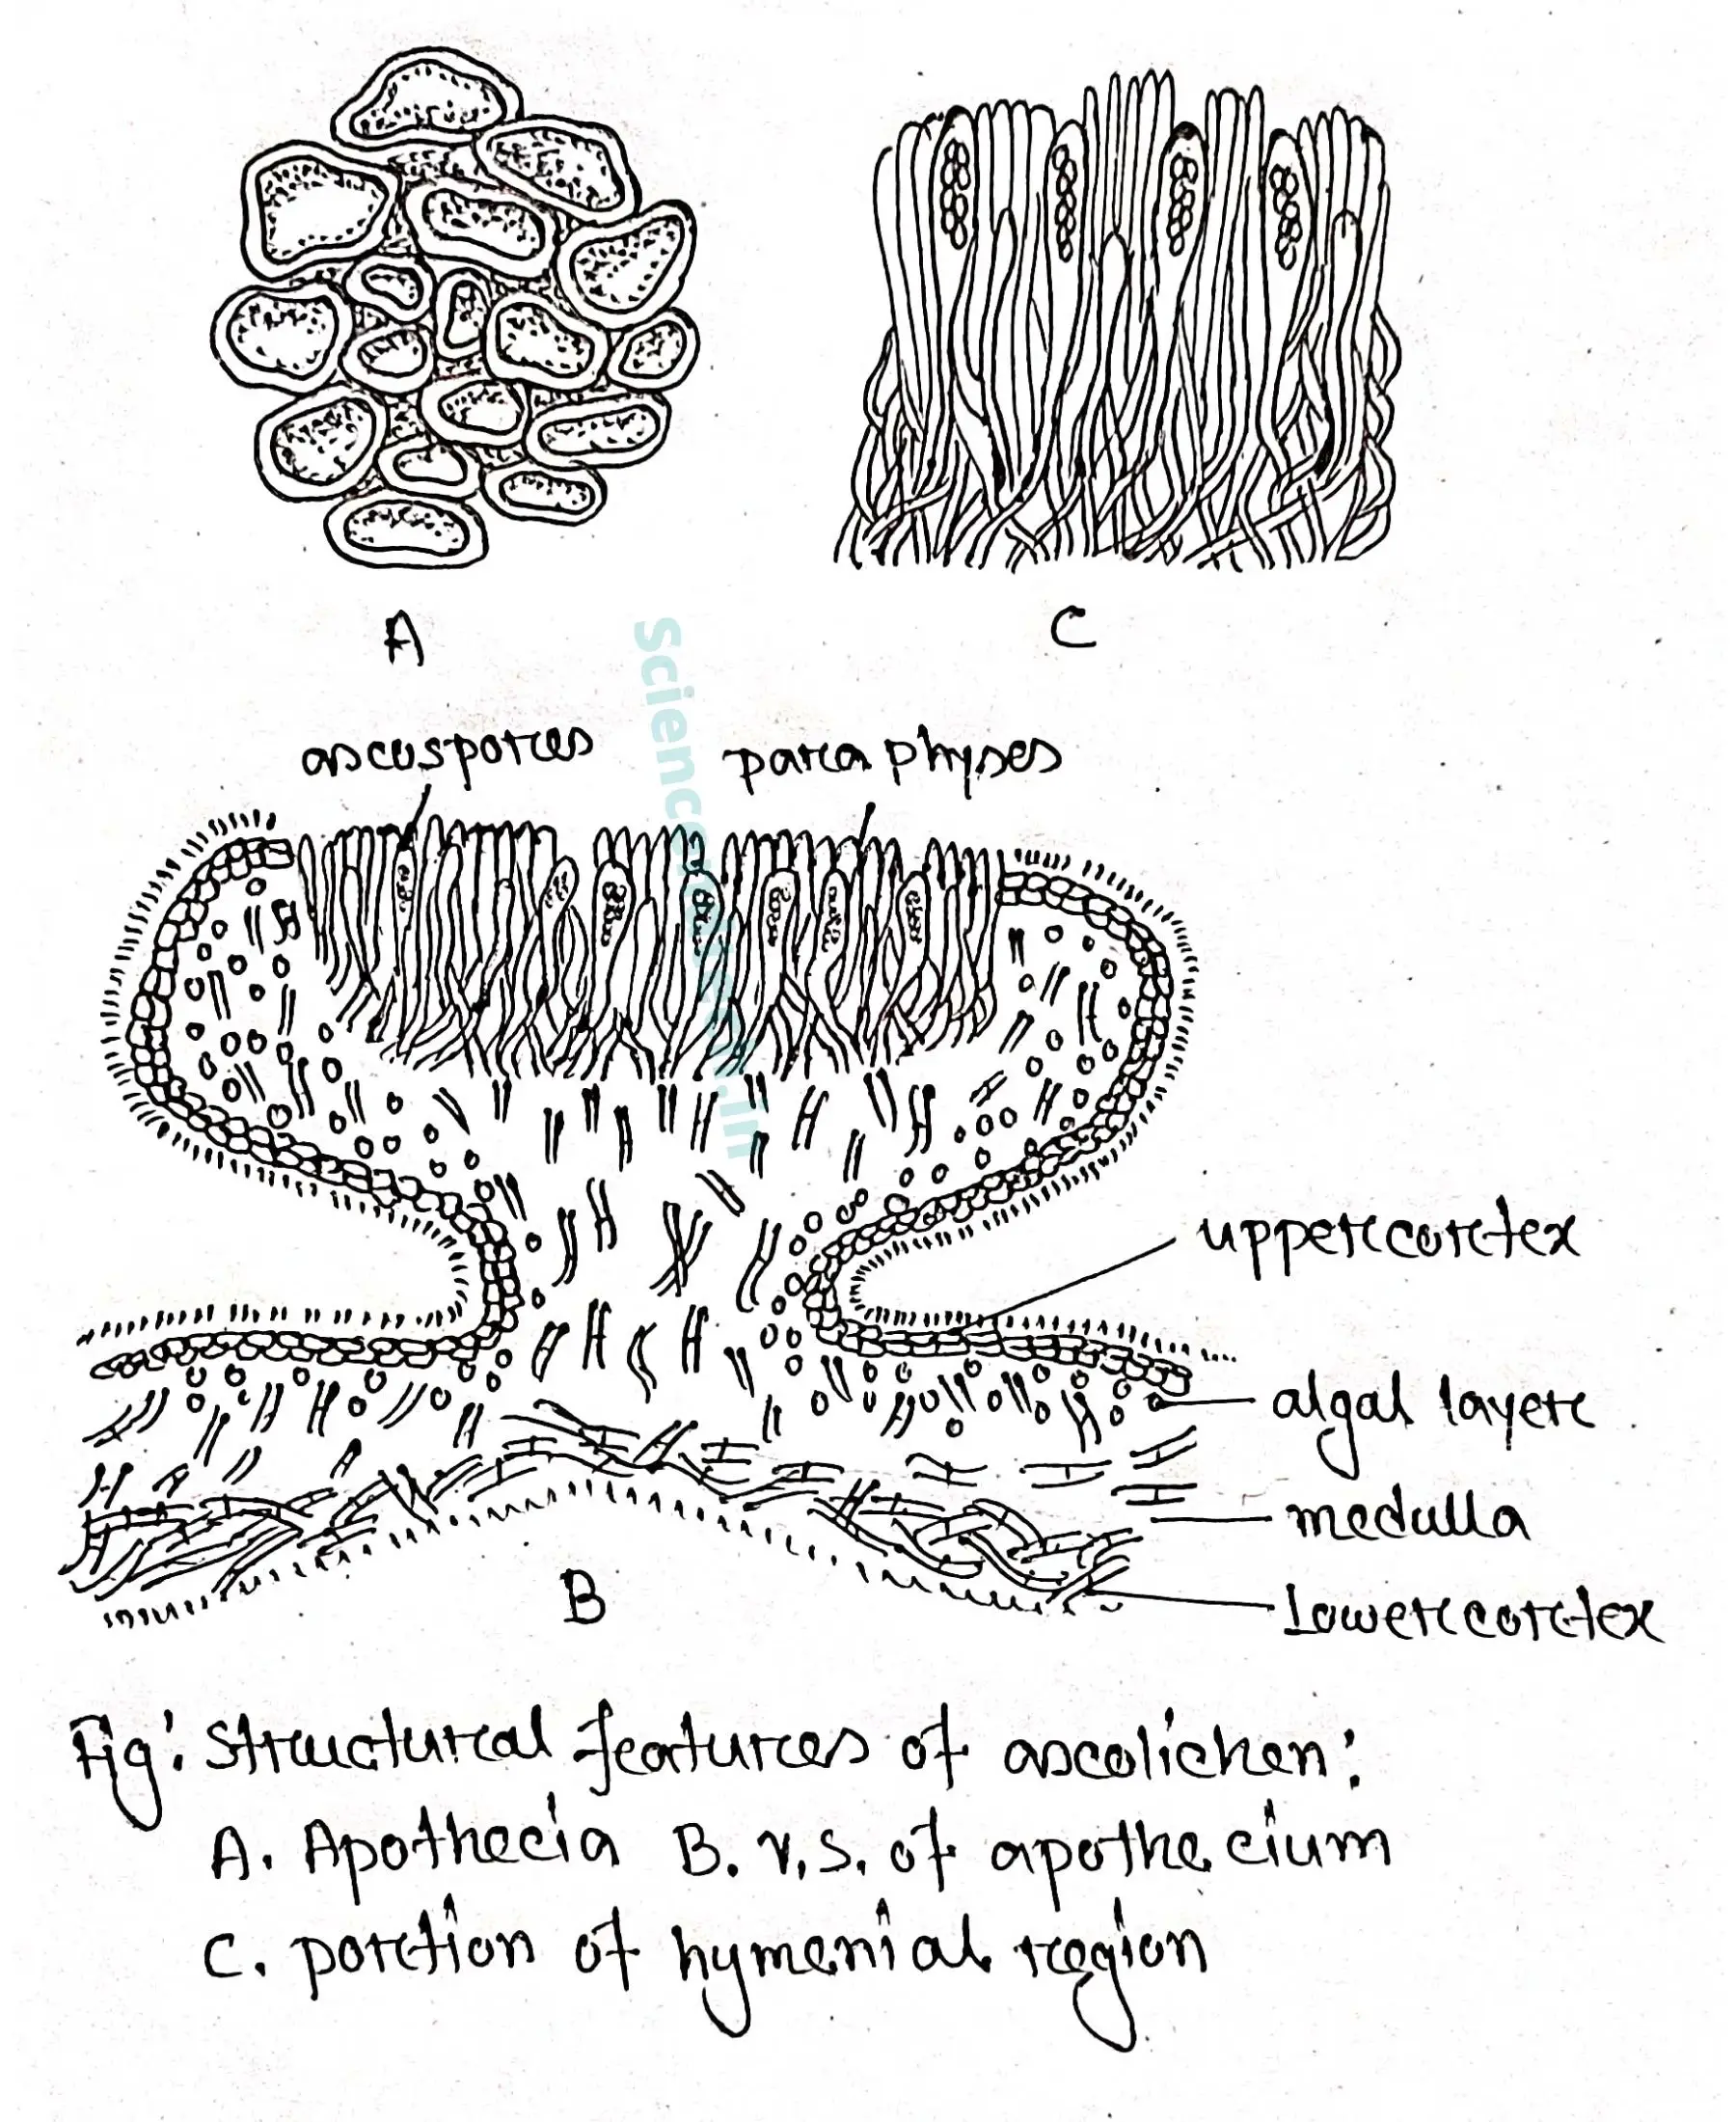 A
C
ascospores
paraphyses
upper cortex
algal layer
medulla
Lower cortex
B
Fig: Structural features of ascolichen:
A. Apothecia B. V.S. of apothecium
C. portion of hymenial region